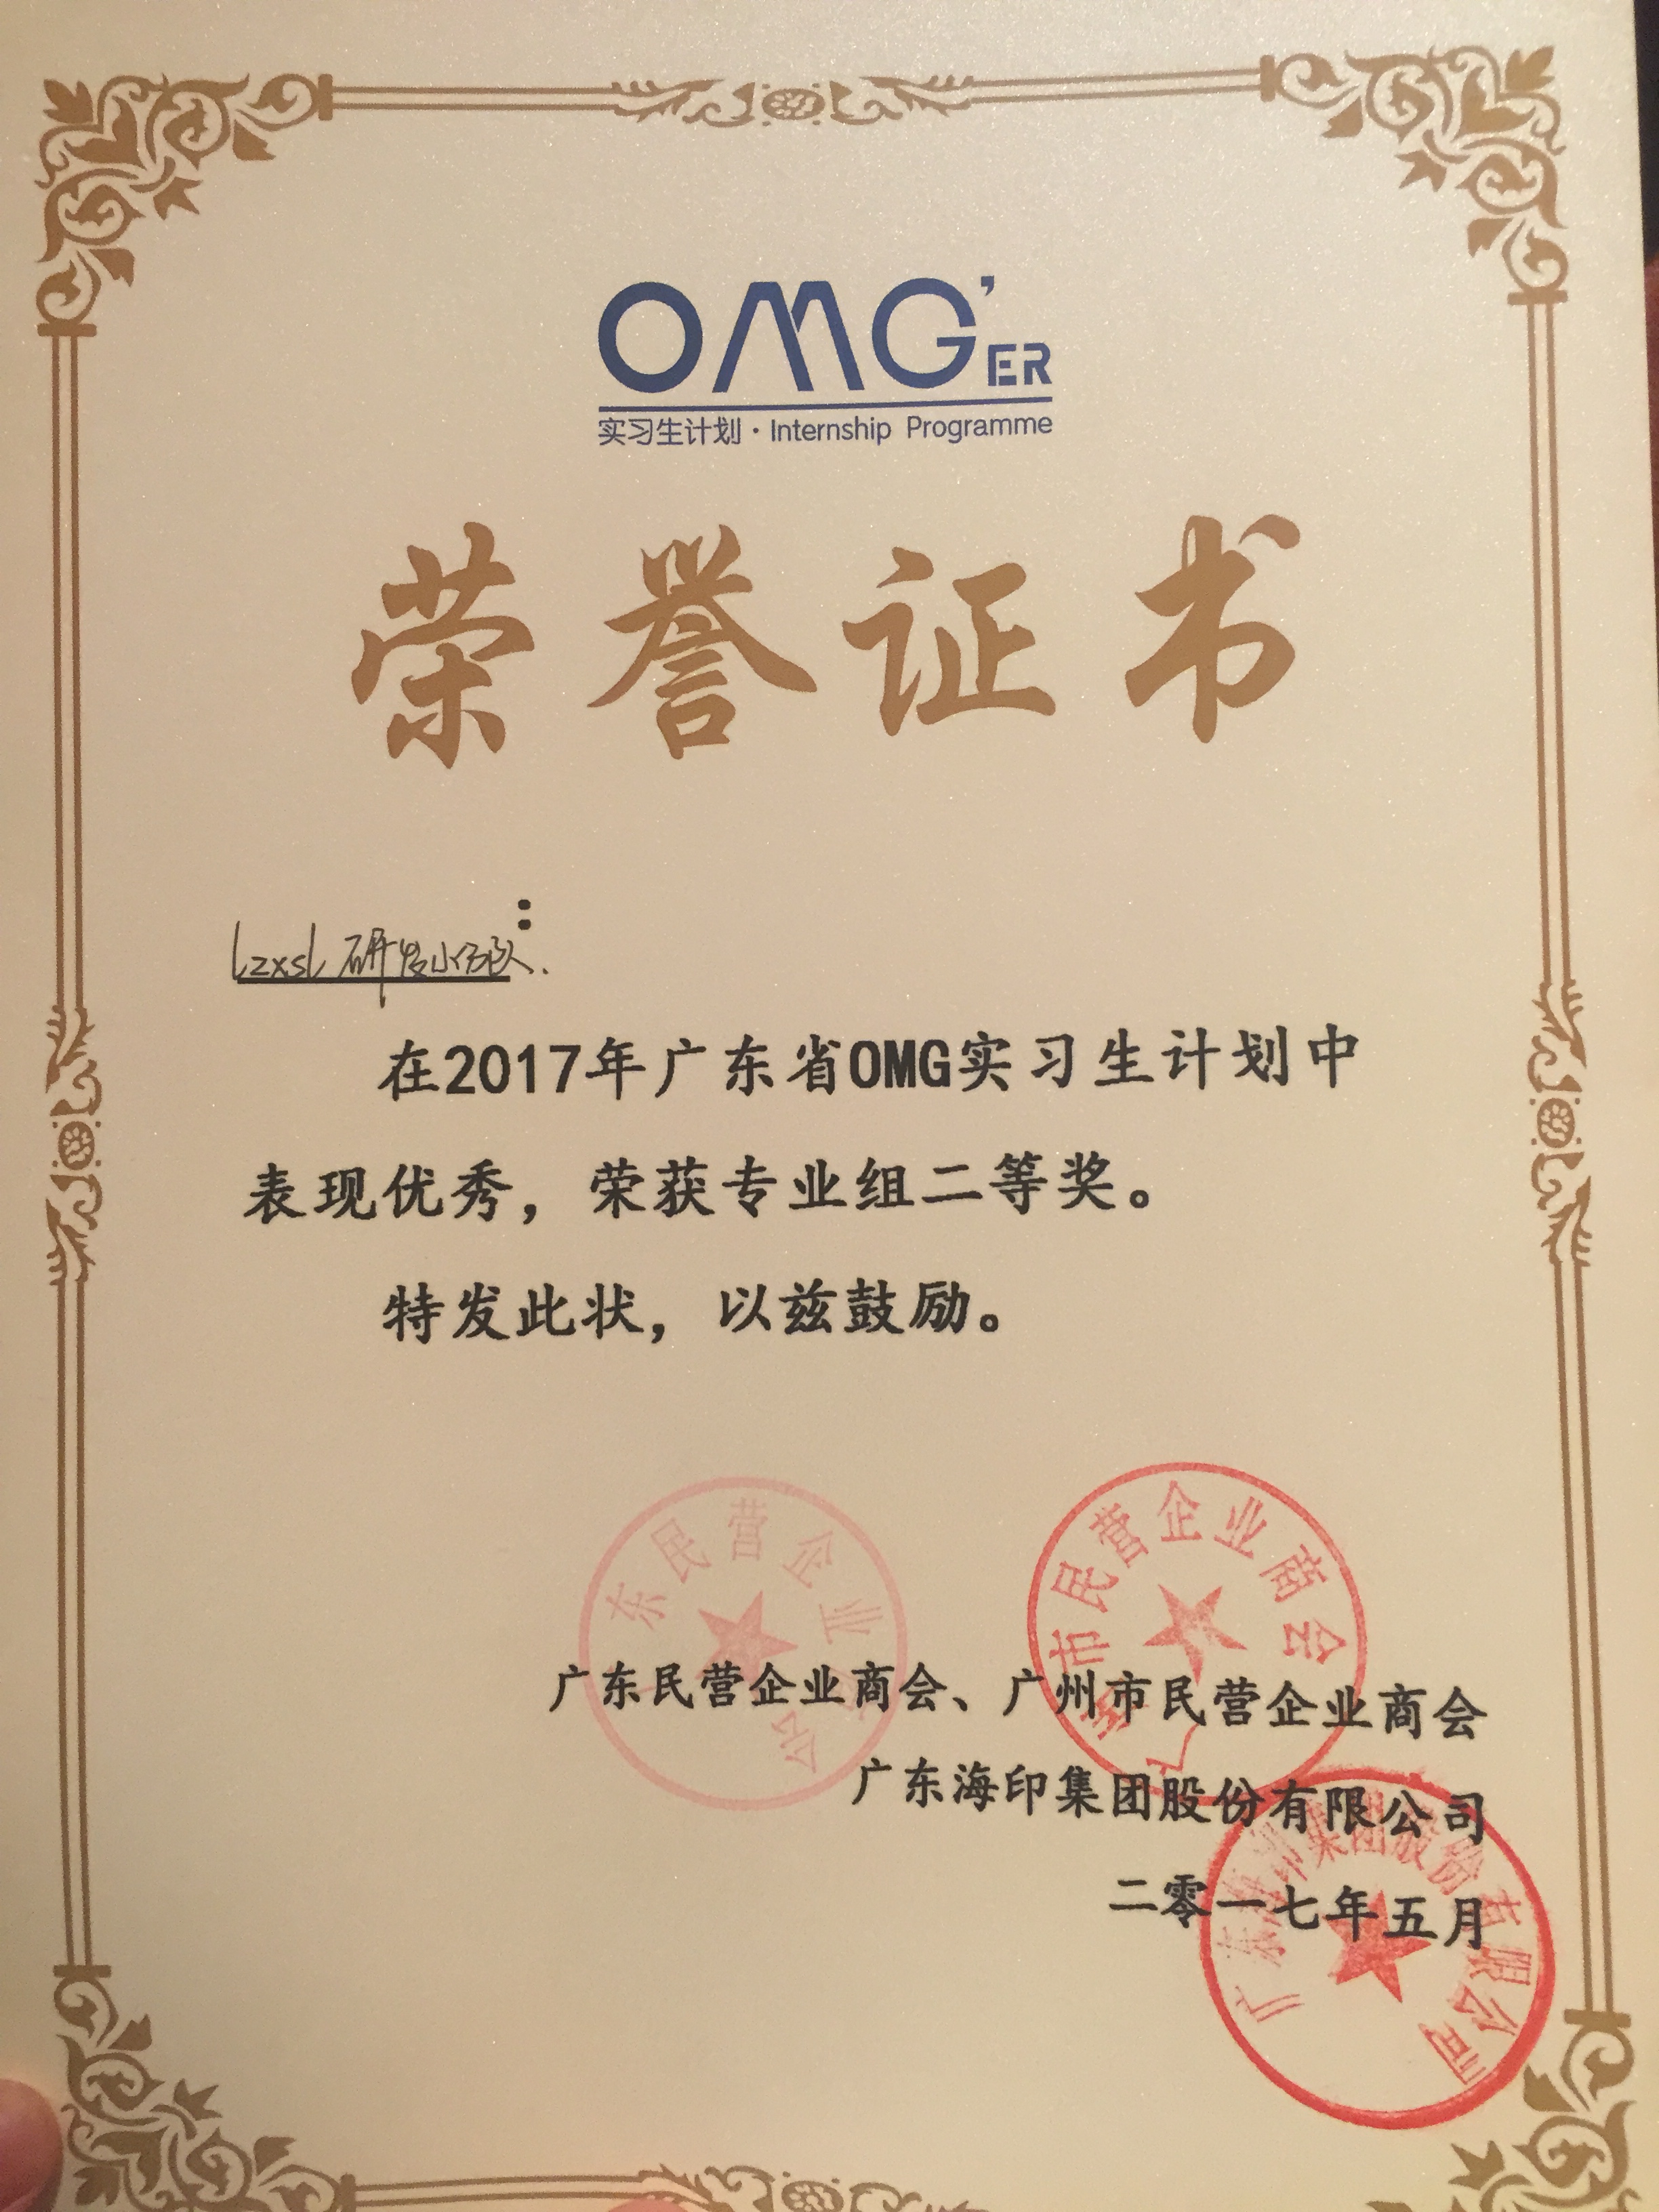 OMG'ER
实习生计划·Internship Programme
荣誉证书
Lzxsl 研发小分队:
在2017年广东省OMG实习生计划中
表现优秀，荣获专业组二等奖。
特发此状，以兹鼓励。
广东民营企业商会、广州市民营企业商会
广东海印集团股份有限公司
二零一七年五月
广东民营企业商会
广州市民营企业商会
广东海印集团股份有限公司